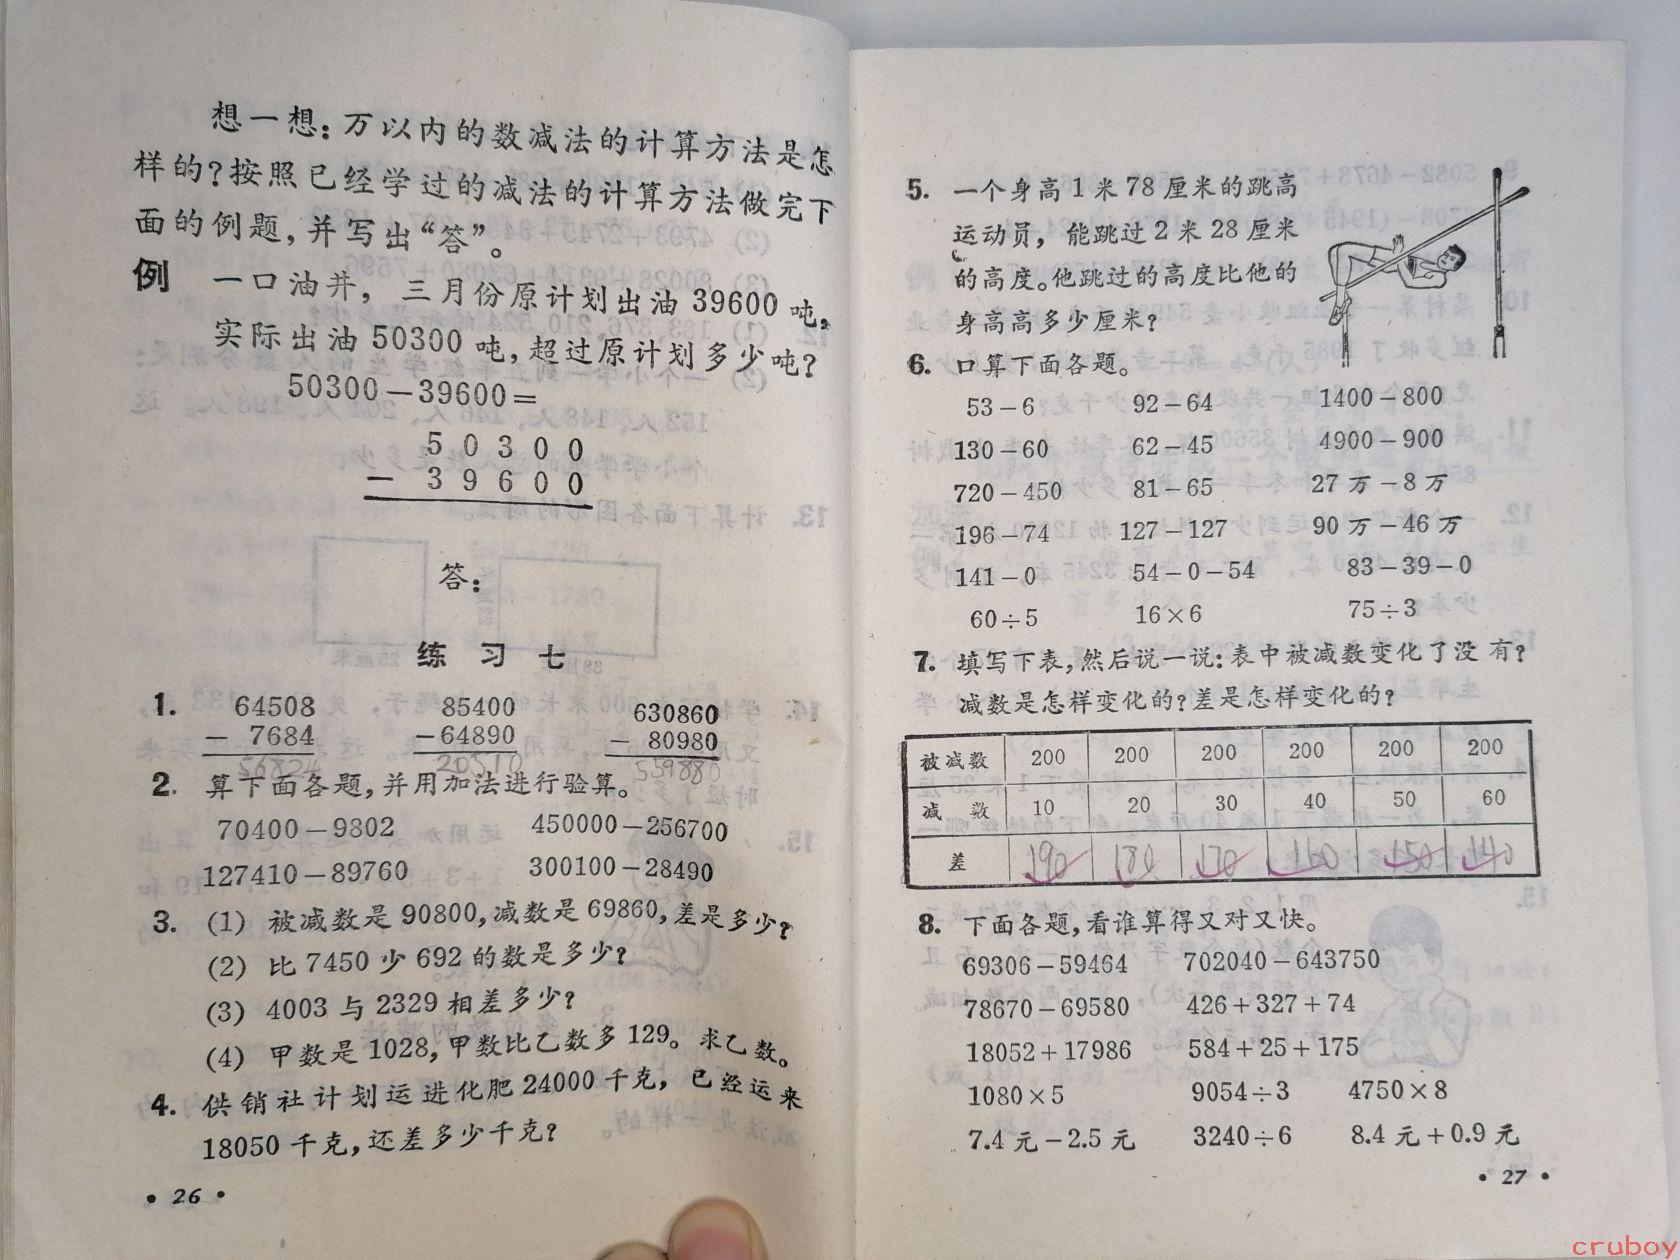 想一想：万以内的数减法的计算方法是怎
样的？按照已经学过的减法的计算方法做完下
面的例题，并写出“答”。
例 一口油井，三月份原计划出油 39600 吨，
实际出油 50300 吨，超过原计划多少吨？
50300－39600＝
5 0 3 0 0
－ 3 9 6 0 0
答：
练 习 七
1. 64508 85400 630860
－ 7684 －64890 － 80980
56824 20510 559880
2. 算下面各题，并用加法进行验算。
70400－9802 450000－256700
127410－89760 300100－28490
3. (1) 被减数是 90800，减数是 69860，差是多少？
(2) 比 7450 少 692 的数是多少？
(3) 4003 与 2329 相差多少？
(4) 甲数是 1028，甲数比乙数多 129。求乙数。
4. 供销社计划运进化肥 24000 千克，已经运来
18050 千克，还差多少千克？
• 26 •
5. 一个身高 1 米 78 厘米的跳高
运动员，能跳过 2 米 28 厘米
的高度。他跳过的高度比他的
身高高多少厘米？
6. 口算下面各题。
53－6 92－64 1400－800
130－60 62－45 4900－900
720－450 81－65 27 万－8 万
196－74 127－127 90 万－46 万
141－0 54－0－54 83－39－0
60÷5 16×6 75÷3
7. 填写下表，然后说一说：表中被减数变化了没有？
减数是怎样变化的？差是怎样变化的？
被减数 200 200 200 200 200 200
减 数 10 20 30 40 50 60
差 190 180 170 160 150 140
8. 下面各题，看谁算得又对又快。
69306－59464 702040－643750
78670－69580 426＋327＋74
18052＋17986 584＋25＋175
1080×5 9054÷3 4750×8
7.4 元－2.5 元 3240÷6 8.4 元＋0.9 元
• 27 •
cruboy